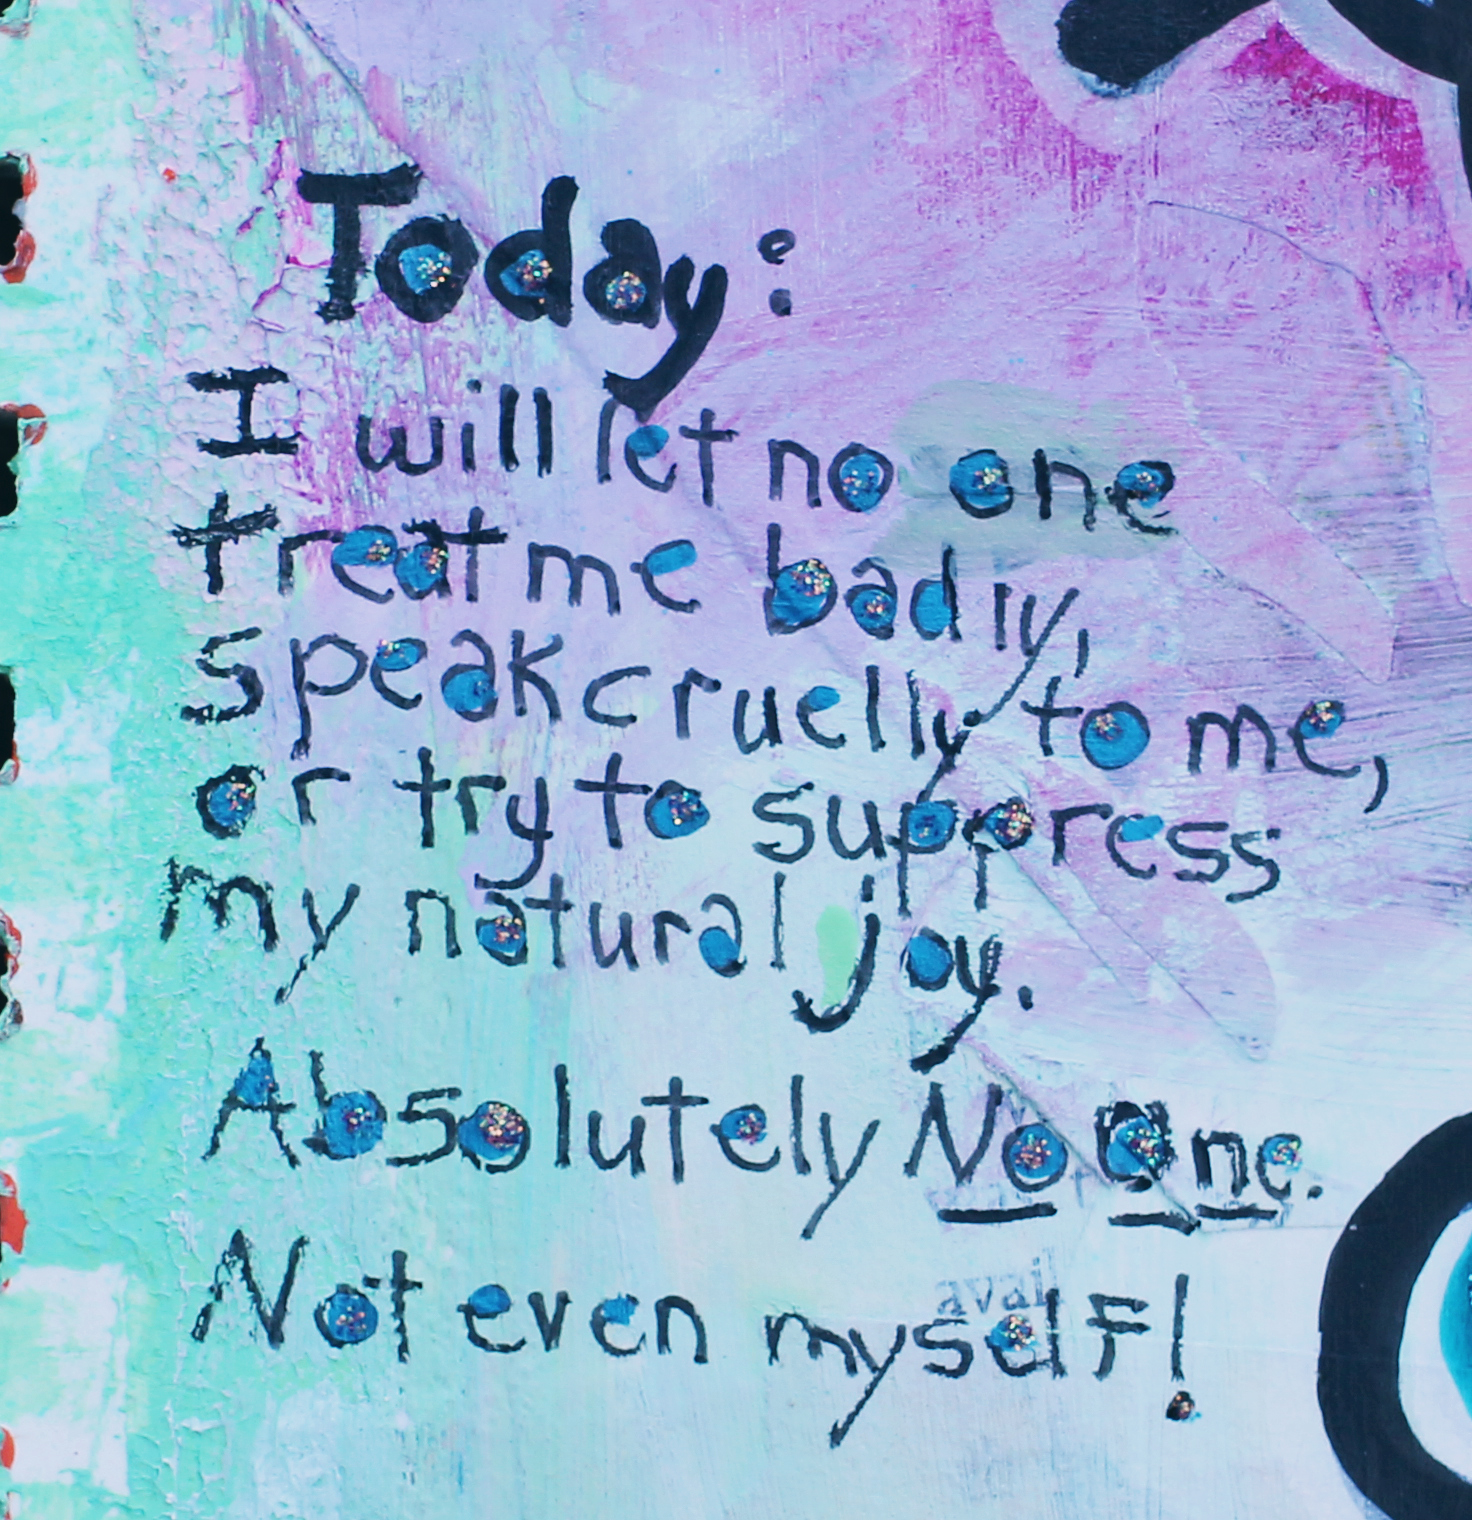 Today:
I will let no one
treat me badly,
speak cruelly to me,
or try to suppress
my natural joy.
Absolutely No One.
avai
Not even myself!